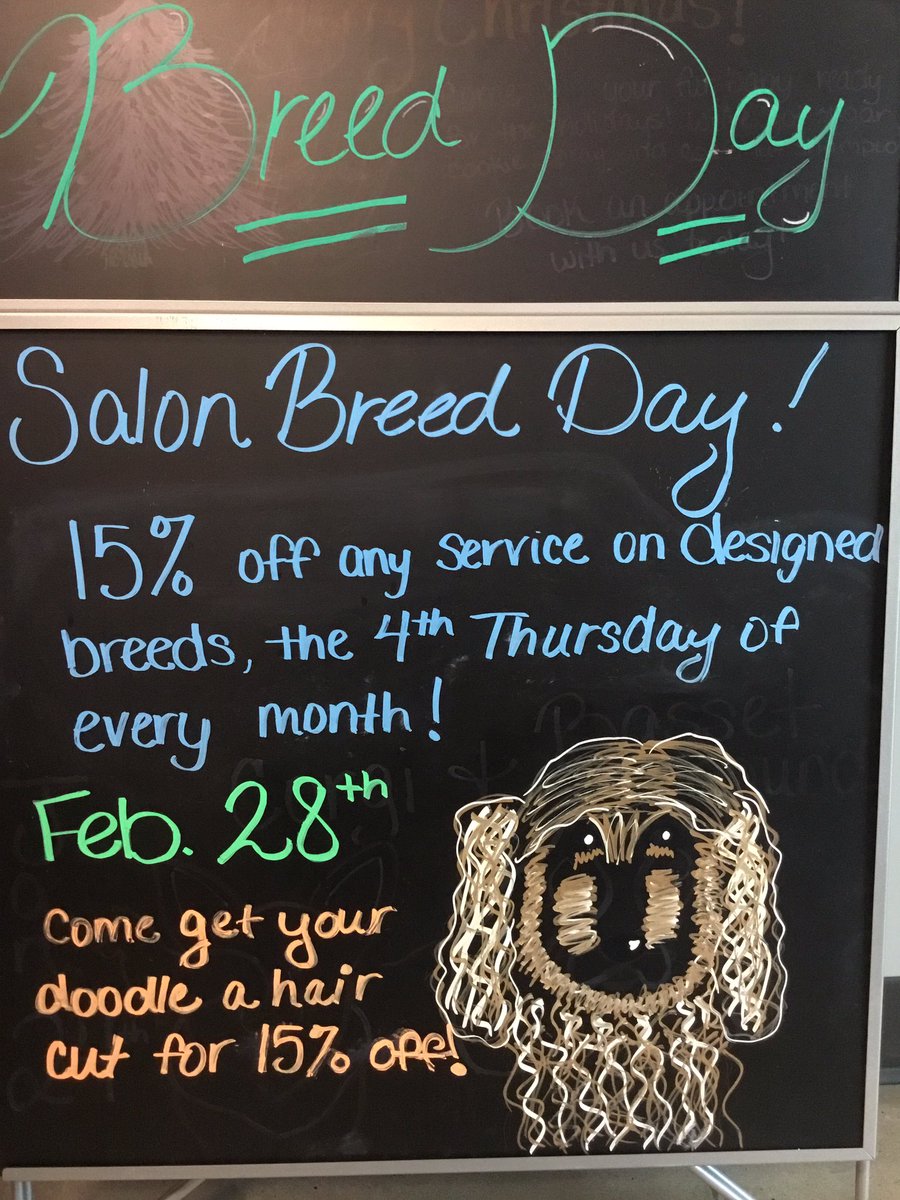 Breed Day
Salon Breed Day!
15% off any service on designed
breeds, the 4th Thursday of
every month!
Feb. 28th
Come get your
doodle a hair
cut for 15% off!
Basset